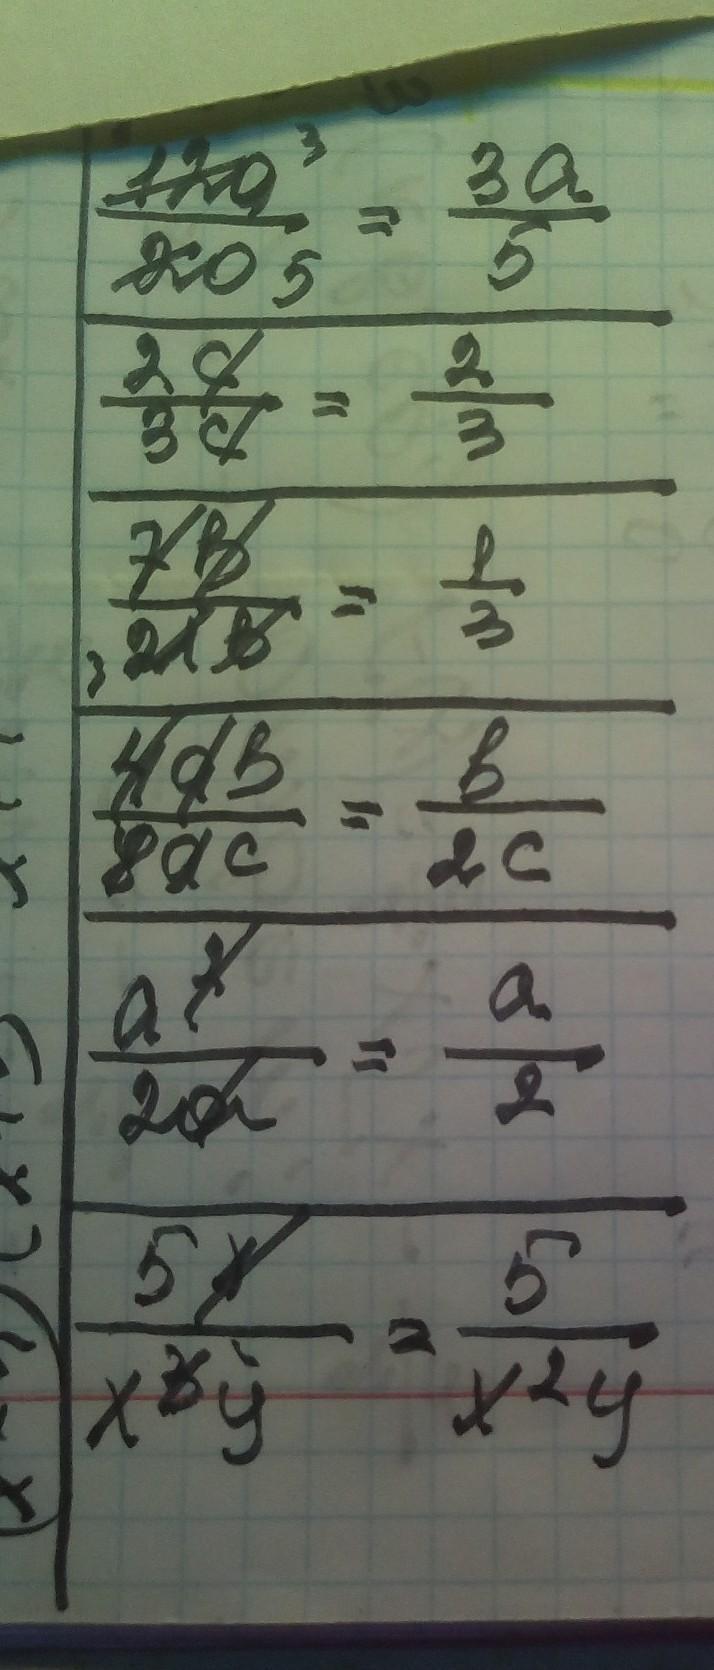 12a³/20 5 = 3a/5
2c/3c = 2/3
7b/3 21b = 1/3
4ab/8ac = b/2c
a²/2a = a/2
5x/x³y = 5/x²y